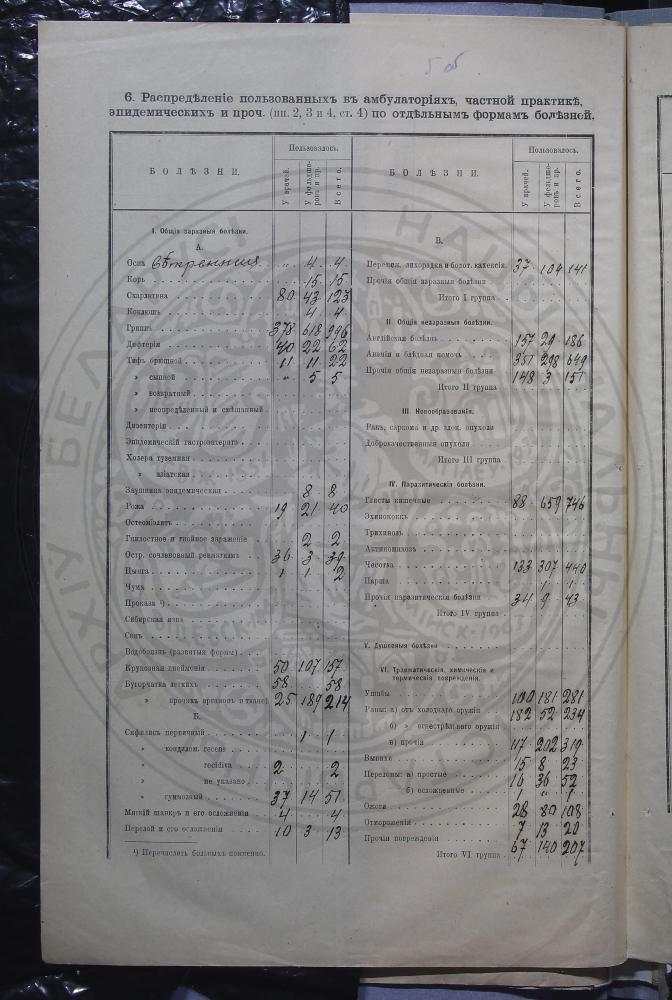 5 об
6. Распредѣленіе пользованныхъ въ амбулаторіяхъ, частной практикѣ,
эпидемическихъ и проч. (пп. 2, 3 и 4, ст. 4) по отдѣльнымъ формамъ болѣзней.
БОЛѢЗНИ. Пользовалось.
У врачей. У фельдшеровъ и пр. Всего.
I. Общія заразныя болѣзни.
А.
Оспа вѣтренная „ 4 4
Корь 15 15
Скарлатина 80 43 123
Коклюшъ 4 4
Грипъ 378 618 996
Дифтерія 40 22 62
Тифъ брюшной 11 11 22
» сыпной „ 5 5
» возвратный
» неопредѣленный и смѣшанный
Дизентерія
Эпидемическій гастроэнтеритъ
Холера туземная
» азіатская
Заушница эпидемическая 8 8
Рожа 19 21 40
Остеоміэлитъ
Гнилостное и гнойное зараженіе 2 2
Остр. сочленовный ревматизмъ 36 3 39
Цынга 1 1 2
Чума
Проказа ¹)
Сибирская язва
Сапъ
Водобоязнь (развитыя формы)
Крупозная пнеймонія 50 107 157
Бугорчатка легкихъ 58 58
» прочихъ органовъ и тканей 25 189 214
Б.
Сифилисъ первичный 1 1
» кондилом. recens
» recidiva 2 2
» не указано
» гуммозный 37 14 51
Мягкій шанкръ и его осложненія 4 4
Перелой и его осложненія 10 3 13
¹) Перечислить больныхъ поименно.
БОЛѢЗНИ. Пользовалось.
У врачей. У фельдшеровъ и пр. Всего.
В.
Перемеж. лихорадка и болот. кахексія 37 104 141
Прочія общія заразныя болѣзни
Итого I группа
II. Общія незаразныя болѣзни.
Англійская болѣзнь 157 29 186
Анэмія и блѣдная немочь 351 298 649
Прочія общія незаразныя болѣзни 148 3 151
Итого II группа
III. Новообразованія.
Ракъ, саркома и др. злок. опухоли
Доброкачественныя опухоли
Итого III группа
IV. Паразитическія болѣзни.
Глисты кишечные 88 659 746
Эхинококкъ
Трихинозъ
Актиномикозъ
Чесотка 133 307 440
Парша 1 1
Прочія паразитическія болѣзни 34 9 43
Итого IV группа
V. Душевныя болѣзни
VI. Травматическія, химическія и
термическія поврежденія.
Ушибы 100 181 281
Раны: а) отъ холоднаго оружія 182 52 234
б) » огнестрѣльнаго оружія
в) прочія 117 202 319
Вывихи 15 8 23
Переломы: а) простые 16 36 52
б) осложненные 1 „ 1
Ожоги 28 80 108
Отмороженія 7 13 20
Прочія поврежденія 67 140 207
Итого VI группа